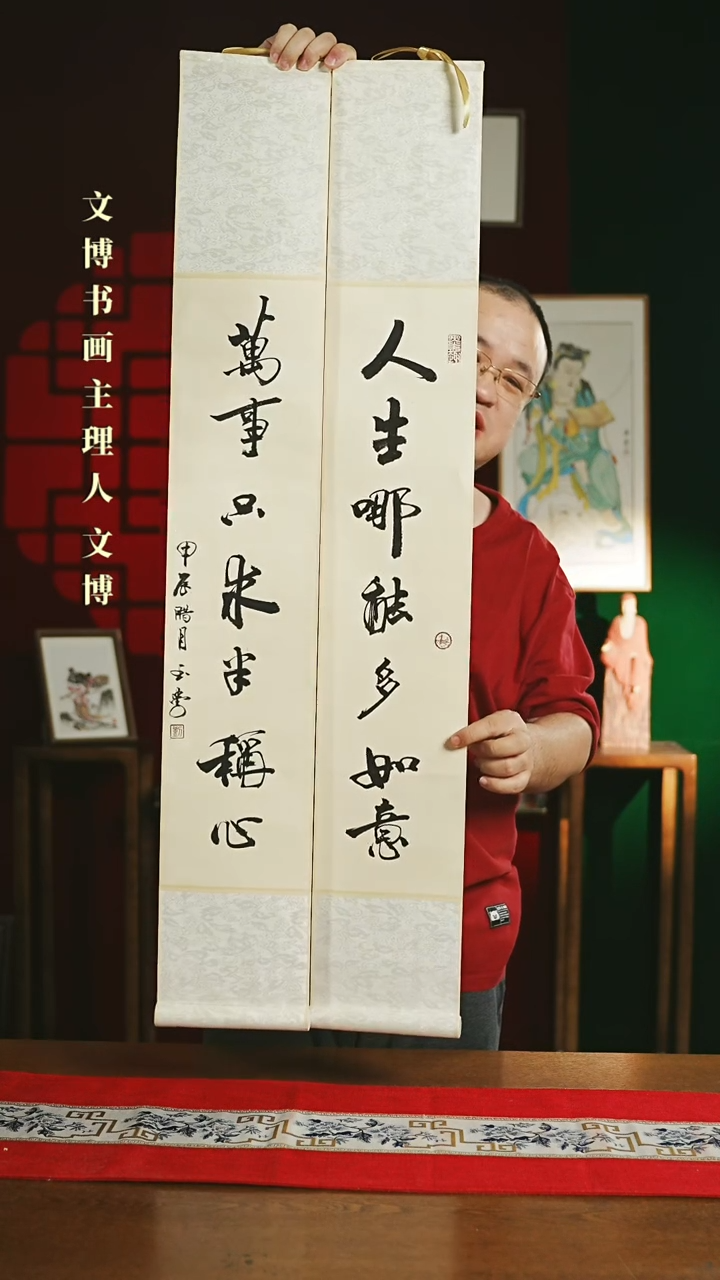 文博书画主理人文博
人生哪能多如意
萬事只求半稱心
甲辰腊月